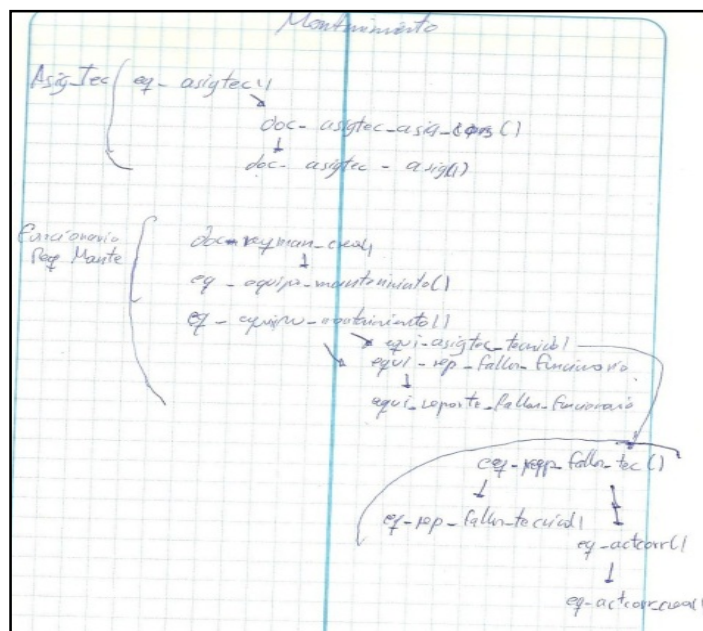 Mantenimiento
Asig_Tec eq_asigtec()
doc_asigtec_asig_()
doc_asigtec_asig()
Funcionario
Req Mante
doc_reqman_crea()
eq_equipo_mantenimiento()
eq_equipo_mantenimiento()
equi_asigtec_tecnico()
equi_rep_fallor_funcionario
equi_reporte_fallor_funcionario
fallor_tec()
eq_rep_fallor_tecnico()
eq_actcorr()
eq_actcorr_crea()